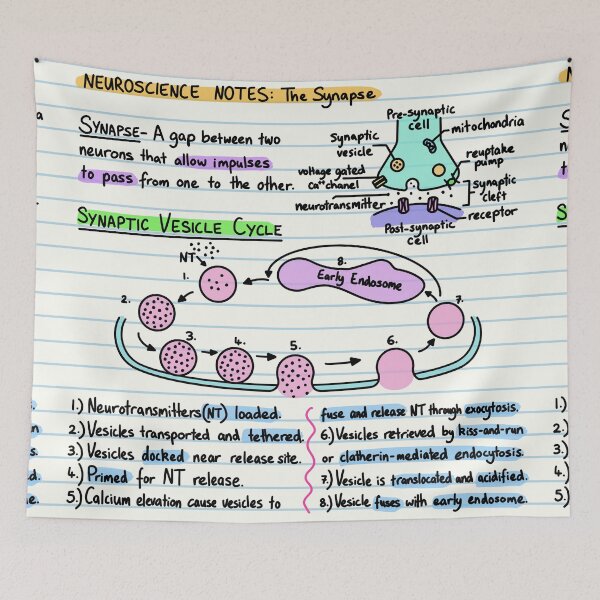 NEUROSCIENCE NOTES: The Synapse
SYNAPSE- A gap between two
neurons that allow impulses
to pass from one to the other.
Pre-synaptic
cell
mitochondria
Synaptic
vesicle
reuptake
pump
voltage gated
Ca²⁺ channel
synaptic
cleft
neurotransmitter
receptor
Post-synaptic
cell
SYNAPTIC VESICLE CYCLE
NT
1.
8.
Early Endosome
2.
7.
3.
4.
5.
6.
1.) Neurotransmitters (NT) loaded.
2.) Vesicles transported and tethered.
3.) Vesicles docked near release site.
4.) Primed for NT release.
5.) Calcium elevation cause vesicles to
fuse and release NT through exocytosis.
6.) Vesicles retrieved by kiss-and-run
or clatherin-mediated endocytosis.
7.) Vesicle is translocated and acidified.
8.) Vesicle fuses with early endosome.
1.)
2.)
3.)
4.)
5.)